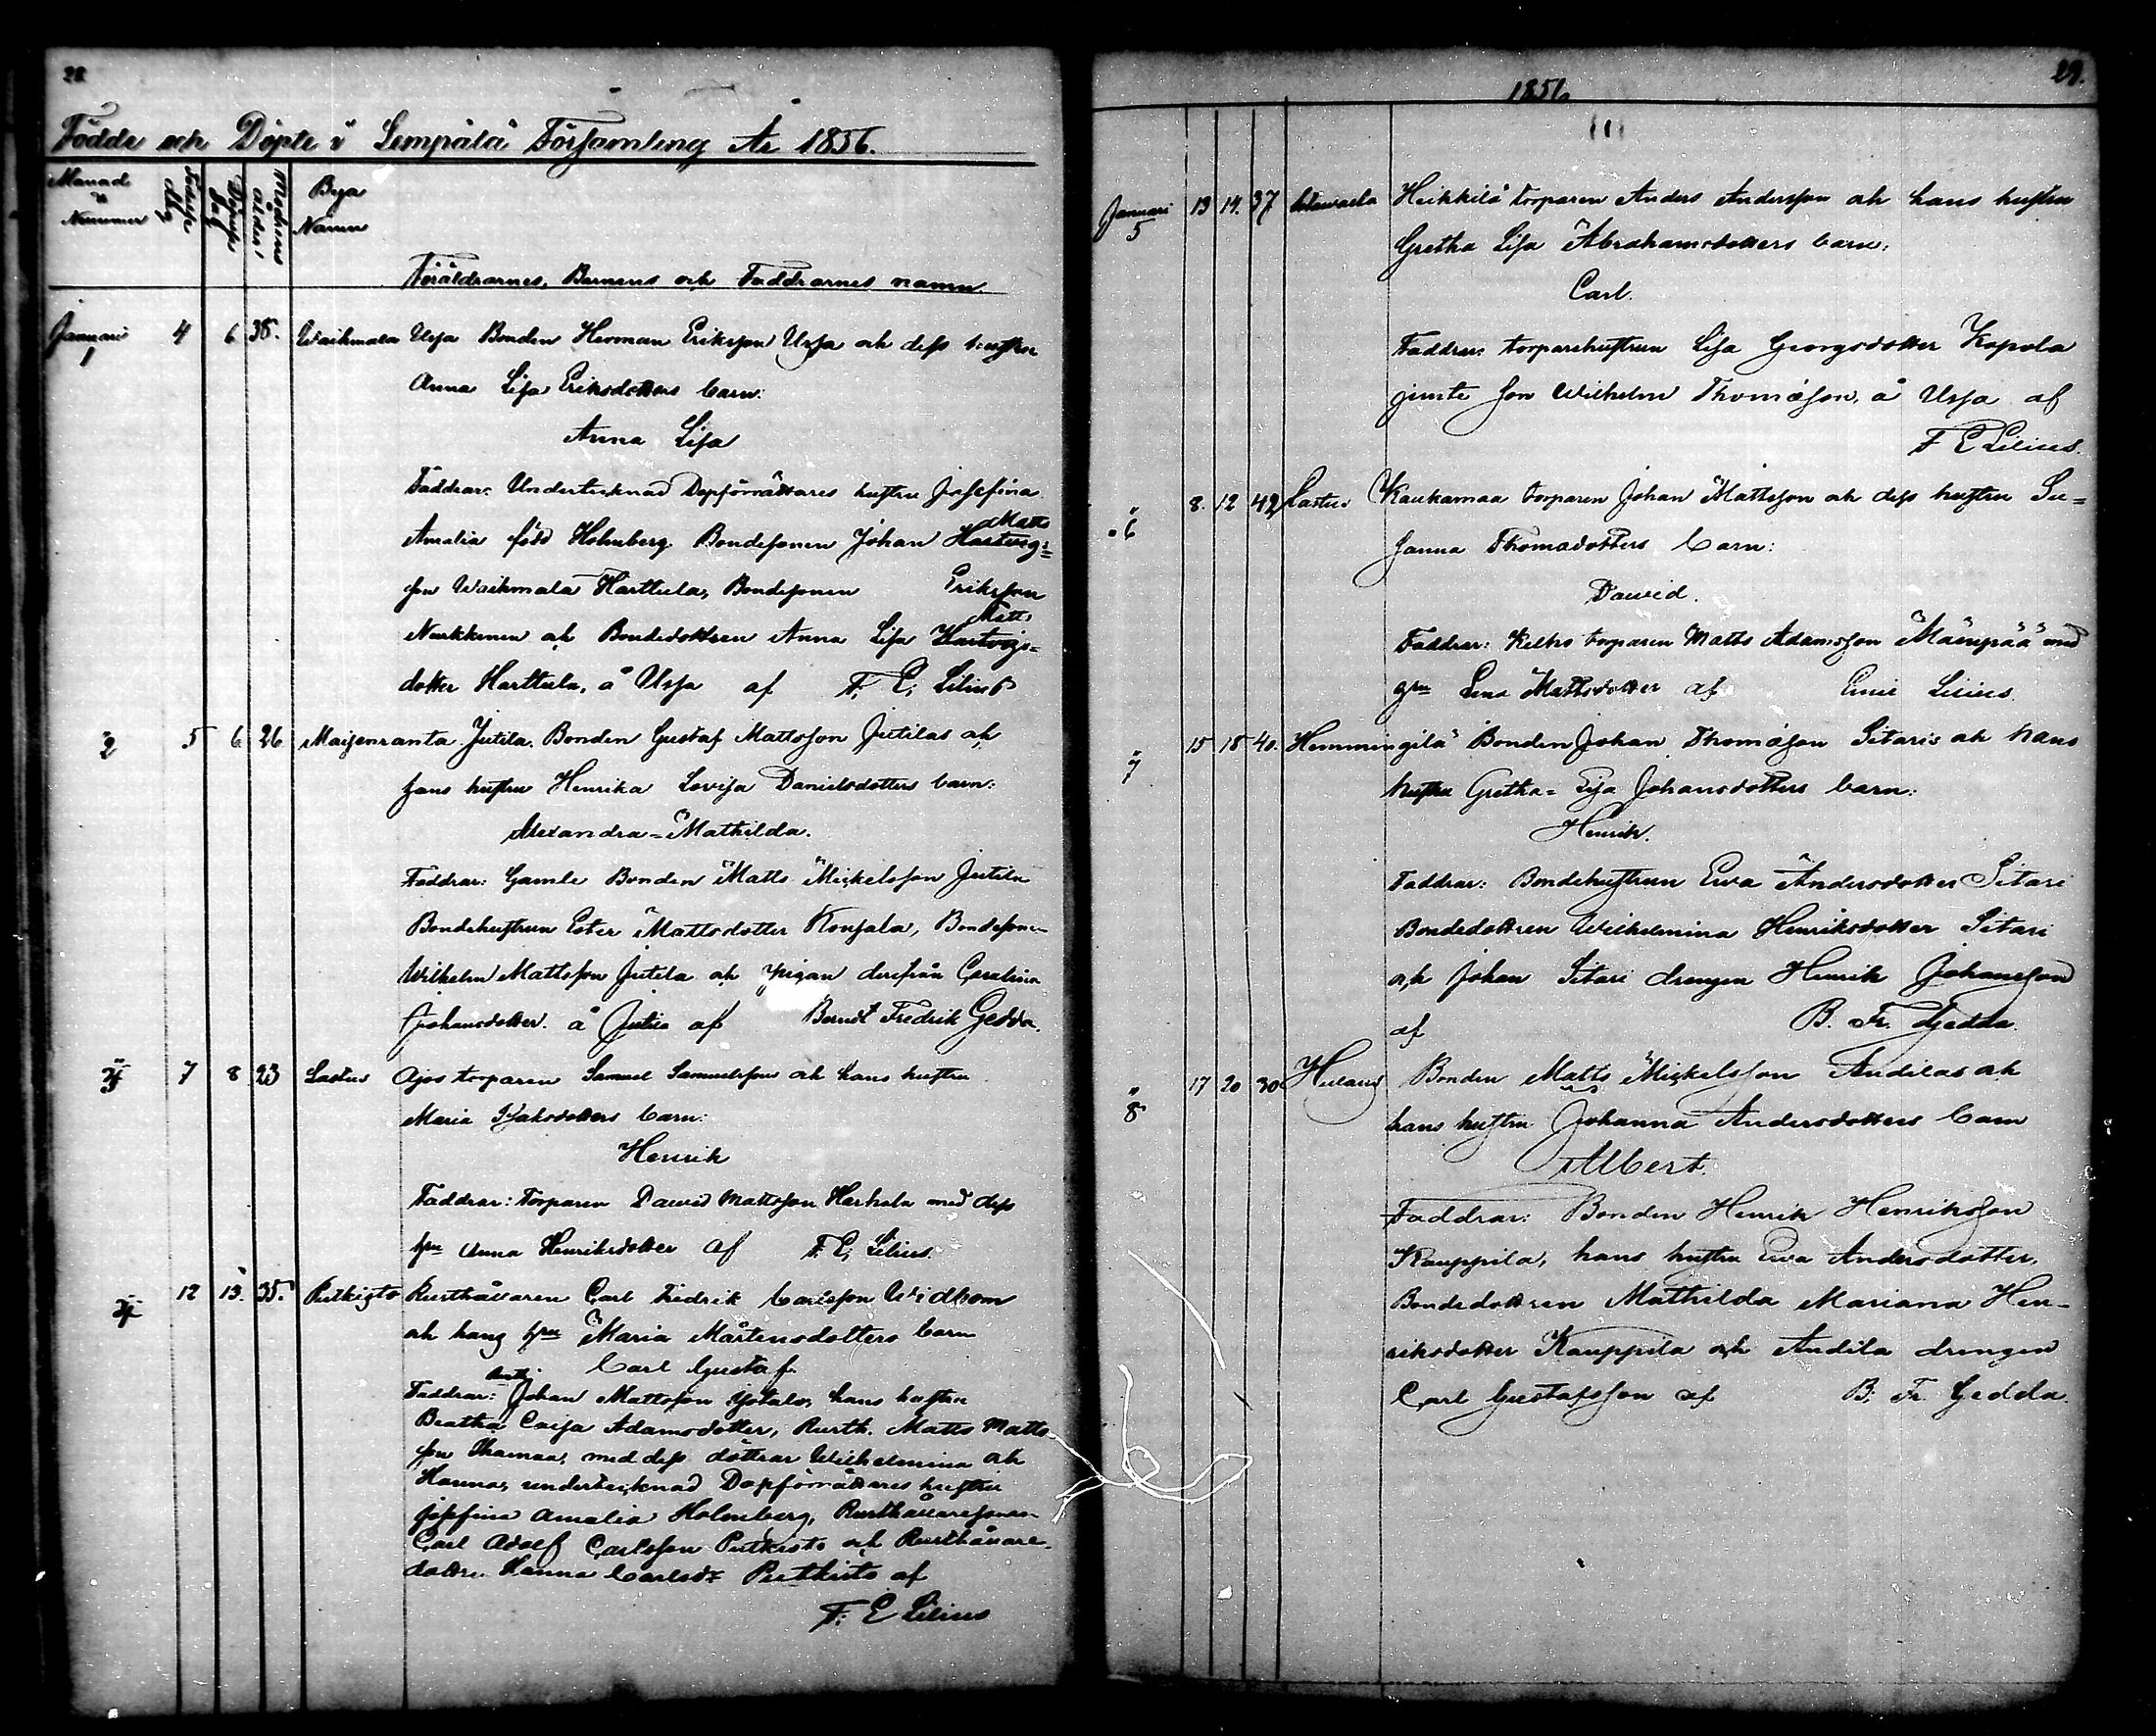 28
Födde och Döpte i Lempälä Församling År 1856.
Månad & Nummer
Födelse dag
Döpnings dag
Modrens ålder
Bya Namn
Föräldrarnes, Barnens och Faddrarnes namn.
Januari 1 4 6 38. Waihmala Ursa Bonden Herman Eriksson Ursa och dess hustru
Anna Lisa Eriksdotters barn:
Anna Lisa
Faddrar: Undertecknad Dopförrättares hustru Josefina
Amalia född Holmberg Bondesonen Johan Matts Hartvigs=
son Waihmala Harttula, Bondesonen Eriksson
Nurkkinen och Bondedottren Anna Lisa Matts Hartvigs=
dotter Harttula, å Ursa af F. E. Lilius
" 2 5 6 26 Maisenranta Jutila. Bonden Gustaf Mattsson Jutilas och
hans hustru Henrika Lovisa Danielsdotters barn:
Alexandra=Mathilda.
Faddrar: Gamle Bonden Matts Mickelsson Jutila
Bondehustrun Ester Mattsdotter Konsala, Bondesonen
Wilhelm Mattsson Jutila och pigan derifrån Carolina
Johansdotter å Jutila af Berndt Fredrik Gedda.
" 3 7 8 23 Lastus Ajos torparen Samuel Samuelsson och hans hustru
Maria Isaksdotters barn:
Henrik
Faddrar: Torparen David Mattsson Harhala med dess
hru Anna Henriksdotter af F. E. Lilius.
" 4 12 13. 35. Kutkisto Rusthållaren Carl Fredrik Carlsson Widbom
och hans hru Maria Mårtensdotters barn
Carl Gustaf.
Faddrar: Rusth. Johan Mattsson Yotala, hans hustru
Beatha Caisa Adamsdotter, Rusth. Matts Matts
son med dess döttrar Wilhelmina och
Hanna, undertecknad Dopförrättares hustru
Josefina Amalia Holmberg, Rusthållaresonen
Carl Adolf Carlsson Putkisto och Rusthållare
dottren Hanna Carlsdr Putkisto af
F. E Lilius
29.
1856.
Januari 5 13 14. 37 Heikkilä torparen Anders Andersson och hans hustru
Gretha Lisa Abrahamsdotters barn:
Carl.
Faddrar: torparehustrun Lisa Georgsdotter Kopola
jemte son Wilhelm Thomasson, å Ursa af
F E Lilius.
" 6 8. 12 42 Lastus Kaukamaa torparen Johan Mattsson och dess hustru Su=
sanna Thomadotters barn:
David.
Faddrar: Kelho torparen Matts Adamsson Mäenpää med
hru Lena Mattsdotter af Emil Lilius.
" 7 15 18 40. Hemmingilä Bonden Johan Thomasson Sitaris och hans
hustru Gretha=Lisa Johansdotters barn:
Henrik.
Faddrar: Bondehustrun Eva Andersdotter Sitari
Bondedottren Wilhelmina Henriksdotter Sitari
och Johan Sitari drengen Henrik Johansson
af B. Fr. Gedda.
" 8 17 20 30 Hulaus Bonden Matts Mickelsson Andilas och
hans hustru Johanna Andersdotters barn
Albert.
Faddrar: Bonden Henrik Henriksson
Kauppila, hans hustru Eva Andersdotter,
Bondedottren Mathilda Mariana Hen=
riksdotter Kauppila och Andila drengen
Carl Gustafsson af B. Fr. Gedda.